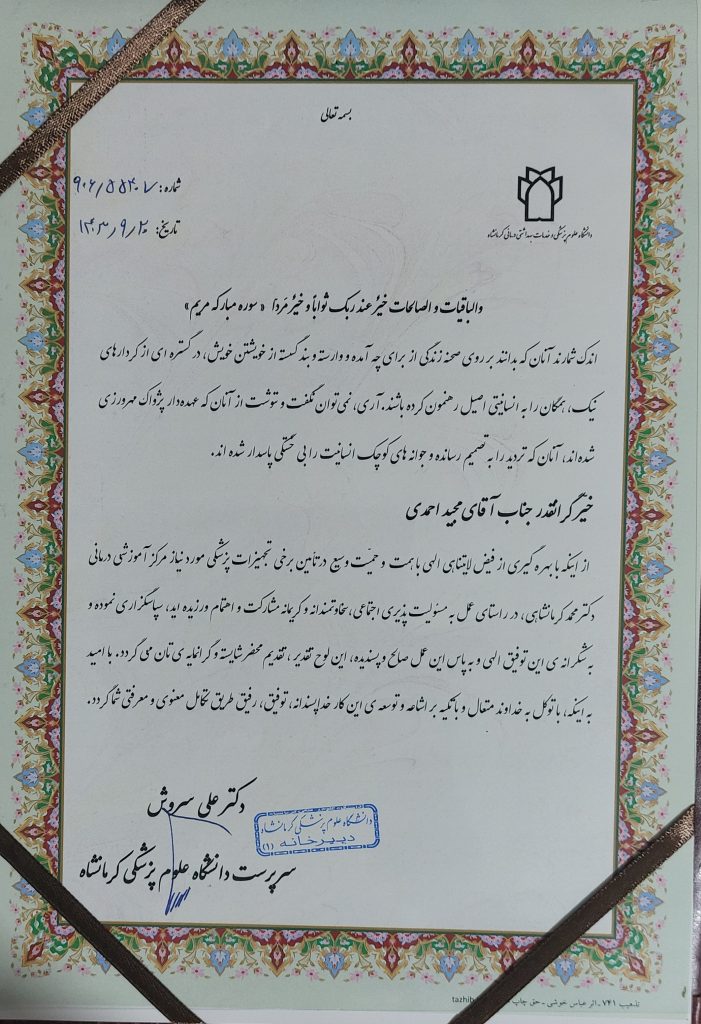 بسمه تعالی
شماره: ۹۰۶/۵۵۳۰۷
تاریخ: ۱۴۰۳/۹/۲۰
دانشگاه علوم پزشکی و خدمات بهداشتی درمانی کرمانشاه
والباقیات و الصالحات خیرٌ عند ربک ثواباً و خیرٌ مَردّا « سوره مبارکه مریم»
اندک شمارند آنان که بدانند بر روی صحنه زندگی از برای چه آمده و وارسته و بند گسسته از خویشتن خویش، در گستره ای از کردارهای
نیک، همگان را به انسانیتی اصیل رهنمون کرده باشند. آری، نمی توان نگفت و ننوشت از آنان که عهده دار پژواک مهرورزی
شده اند، آنان که تردید را به تصمیم رسانده و جوانه های کوچک انسانیت را بی خستگی پاسدار شده اند.
خیر گرانقدر جناب آقای مجید احمدی
از اینکه با بهره گیری از فیض لایتناهی الهی با همت و حمیّت وسیع در تأمین برخی تجهیزات پزشکی مورد نیاز مرکز آموزشی درمانی
دکتر محمد کرمانشاهی، در راستای عمل به مسئولیت پذیری اجتماعی، سخاوتمندانه و کریمانه مشارکت و اهتمام ورزیده اید، سپاسگزاری نموده و
به شکرانه ی این توفیق الهی و به پاس این عمل صالح و پسندیده، این لوح تقدیر، تقدیم محضر شایسته و گرانمایه ی تان می گردد. با امید
به اینکه، با توکل به خداوند متعال و با تکیه بر اشاعه و توسعه ی این کار خداپسندانه، توفیق، رفیق طریق تکامل معنوی و معرفتی شما گردد.
دکتر علی سروش
دانشگاه علوم پزشکی کرمانشاه
دبیرخانه (۱)
سرپرست دانشگاه علوم پزشکی کرمانشاه
تذهیب ۷۴۱ - اثر عباس خوشی - حق چاپ tazhib